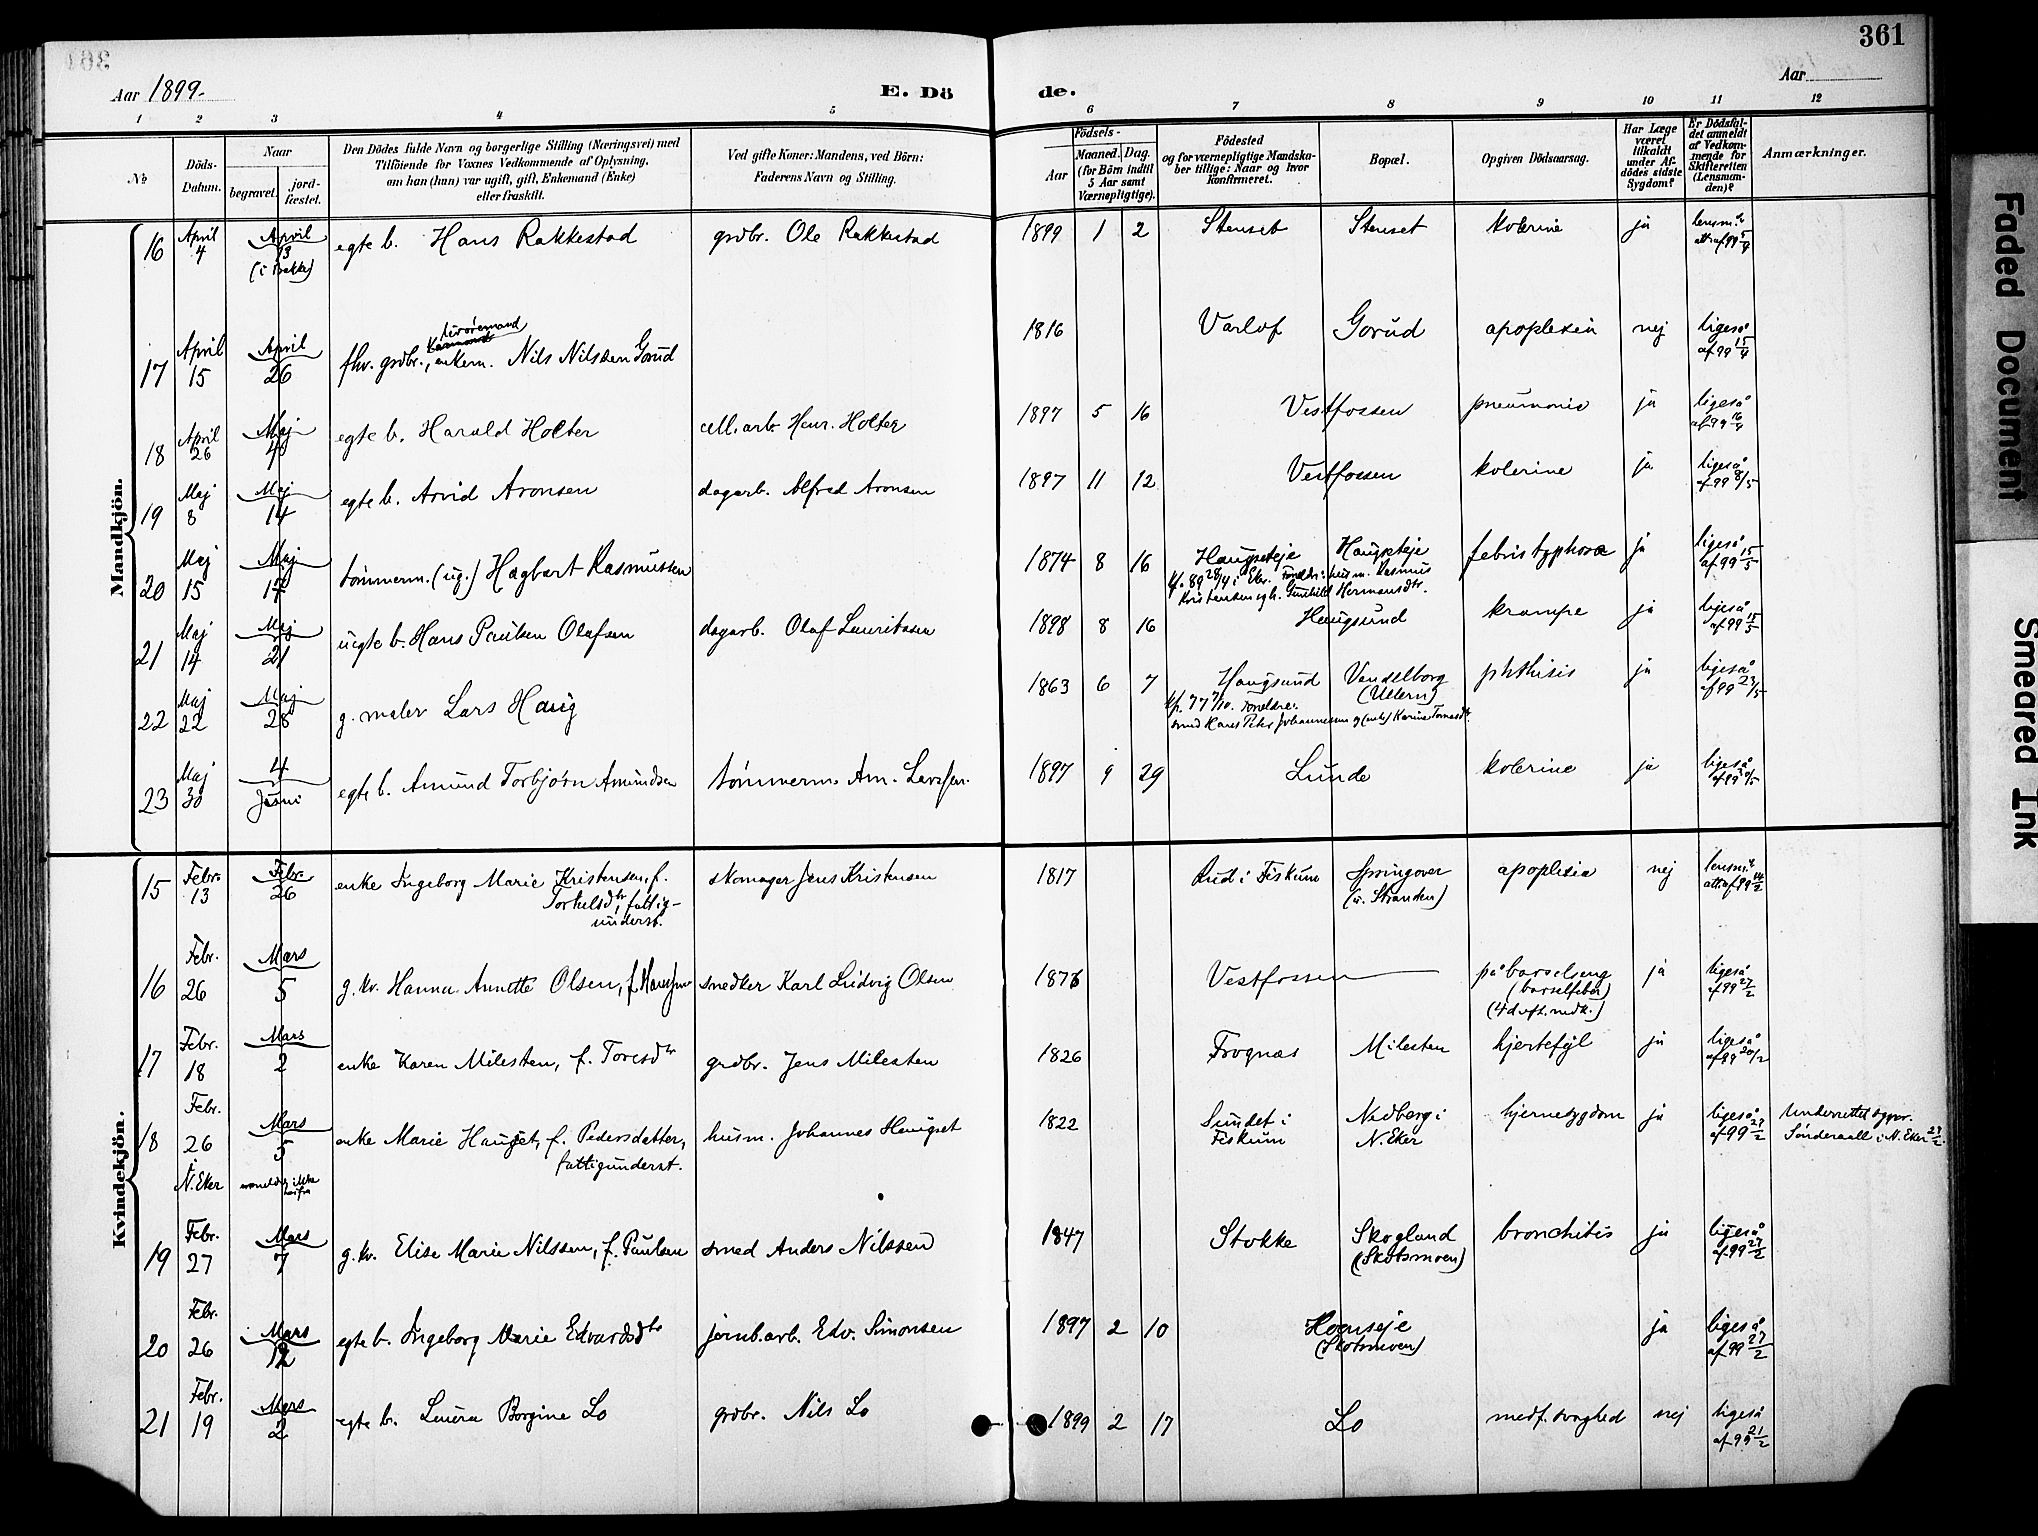 361
Aar 1899.
E. Dö de.
Aar
1 2 3 4 5 6 7 8 9 10 11 12
№
Döds-Datum.
Naar
begravet. jordfæstet.
Den Dödes fulde Navn og borgerlige Stilling (Næringsvei) med
Tilföiende for Voxnes Vedkommende af Oplysning,
om han (hun) var ugift, gift, Enkemand (Enke)
eller fraskilt.
Ved gifte Koner: Mandens, ved Börn:
Faderens Navn og Stilling.
Födsels-
Aar Maaned. Dag.
(for Börn indtil
5 Aar samt
Værnepligtige).
Födested
og for værnepligtige Mandska-
ber tillige: Naar og hvor
konfirmeret.
Bopæl.
Opgiven Dödsaarsag.
Har Læge
været
tilkaldt
under Af-
dödes sidste
Sygdom?
Er Dödsfal-
det anmeldt
af Vedkom-
mende for
Skifteretten
(Lensman-
den)?
Anmærkninger.
Mandkjön.
16 April 4 April 13 (i Bakke) egte b. Hans Rakkestad grdbr. Ole Rakkestad 1899 1 2 Stenset Stenset kolerine ja lensm.s att. af 99 5/4
17 April 15 April 26 fhv. grdbr., enkem. Nils Nilssen Gorud 1816 Varlof Gorud apoplexia nej ligeså af 99 15/4
18 April 26 Maj 4 egte b. Harald Holter cell. arb. Henr. Holter 1897 5 16 Vestfossen pneumonie ja ligeså af 99
19 Maj 8 Maj 14 egte b. Arvid Aronsen dagarb. Alfred Aronsen 1897 11 12 Vestfossen kolerine ja ligeså af 99 8/5
20 Maj 15 Maj 17 tømmerm. (ug.) Hagbart Rasmussen 1874 8 16 Haugseteje Haugseteje febris typhosa ja ligeså af 99 15/5
kf. 89 28/4 i Eker. Foreldre: husm. Rasmus
Kristensen og h. Gunhild Hermansdtr.
21 Maj 14 Maj 21 uegte b. Hans Paulsen Olafsen dagarb. Olaf Lauritssen 1898 8 16 Haugsund krampe ja ligeså af 99 15/5
22 Maj 22 Maj 28 g. maler Lars Haug 1863 6 7 Haugsund Vendelborg (Ullern) phthisis ja ligeså af 99 23/5
kf. 77 7/10. Foreldre:
smed Hans Peter Johannessen og Karine
23 Maj 30 4 Juni egte b. Amund Torbjørn Amundsen tømmerm. Am. Larssen 1897 9 29 Lunde kolerine ja ligeså af 99 30/5
Kvindekjön.
15 Febr. 13 Febr. 26 enke Ingeborg Marie Kristensen, f.
Torkelsdtr, fattig-
underst. skomager Jens Kristensen 1817 Rud i Fiskum Springover (v. Stranden) apoplexia nej lensm.s att. af 99 14/2
16 Febr. 26 Mars 5 g. kv. Hanna Annette Olsen, f. Hanssen snedker Karl Ludvig Olsen 1876 Vestfossen på barselseng (barselfeber) (4 d. eft. nedk.) ja ligeså af 99 27/2
17 Febr. 18 Mars 2 enke Karen Milesten, f. Toresdtr grdbr. Jens Milesten 1826 Frognæs Milesten hjertefejl ja ligeså af 99 20/2
18 Febr. 26 i N. Eker Mars 5 enke Marie Hauget, f. Pedersdatter,
fattigunderst. husm. Johannes Haugset 1822 Sundet i Fiskum Nedberg i N. Eker hjernesygdom ja ligeså af 99 27/2 Underrettet sogepr.
Sønderaall i N. Eker 27/2.
19 Febr. 27 Mars 7 g. kv. Elise Marie Nilssen, f. Paulsen smed Anders Nilssen 1847 Stokke Skogland (Skotsmoen) bronchitis ja ligeså af 99 27/2
20 Febr. 26 Mars 12 egte b. Ingeborg Marie Edvardsdtr jernb. arb. Edv. Simonsen 1897 2 10 Hoenseje (Skotsmoen) ja ligeså af 99 27/2
21 Febr. 19 Mars 2 egte b. Laura Borgine Lo grdbr. Nils Lo 1899 2 17 Lo medf. svaghed nej ligeså af 99 21/2
Faded Document
Smeared Ink